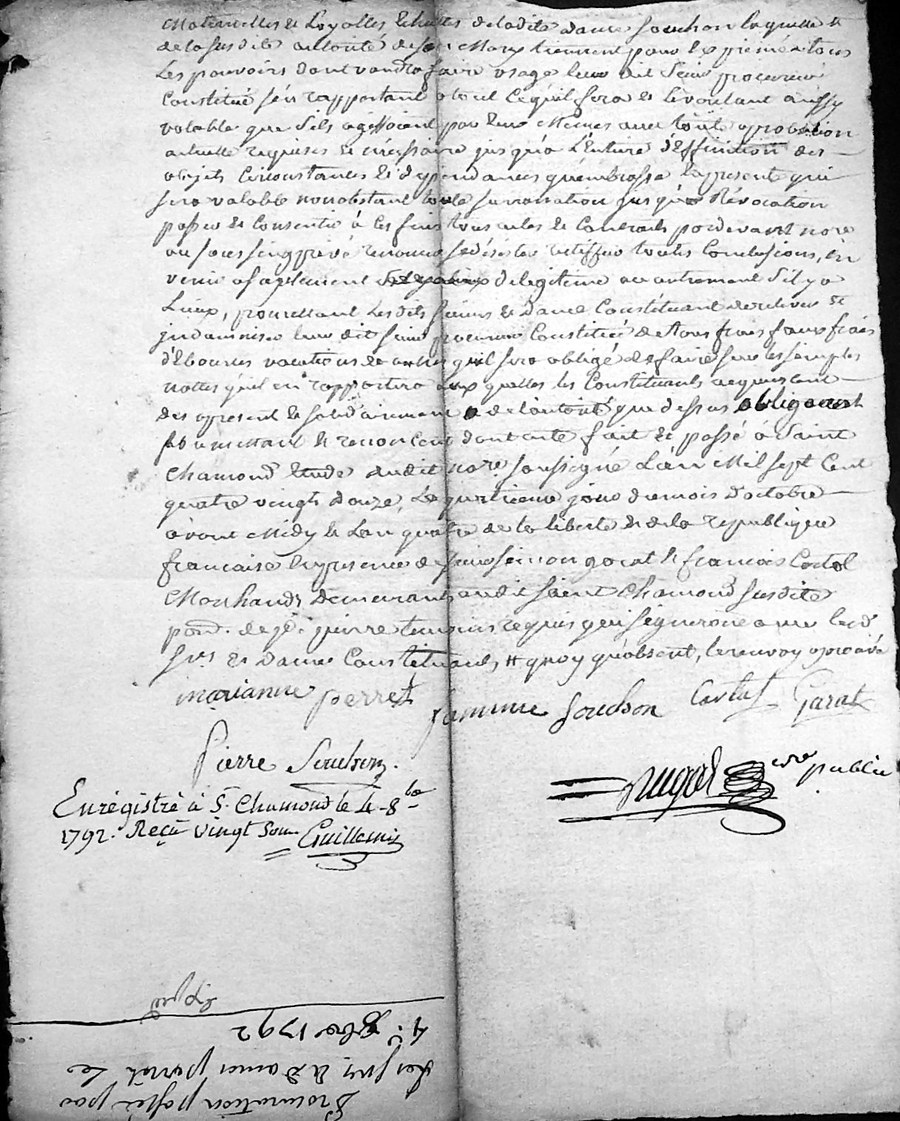 Maternelles & Loyalles échutes de ladite dame Souchon laquelle &
de la susdite autorité de son Mary donnent pour les présentes tous
Les pouvoirs dont voudra faire usage leur dit Sieur procureur
Constitué s'en rapportant a tout ce qu'il fera & le voulant aussy
valable que s'ils agissoient par eux Mêmes avec toute aprobation
actuelle requises & nécessaire jusqu'a L'entiere deffinition des
objets Circonstances & dependances qu'embrasse la present qui
sera valable nonobstant toute surannation jusqu'a Révocation
passer & Consentir à ces fins tous actes & Contrats pardevant nore
ou sous seing privé renoncer se désister rectiffier toutes Conclusions, en
venir a sagitement de legitime ou autrement s'il y a
Lieux, promettant Les dits sieurs & Dame Constituant de relever &
jndamniser leur dit sieur procureur Constitué de tous frais faux frais
d'ébourcés vacations & autres qu'il sera obligé de faire sur les simples
nottes quil en rapportera aux quelles les Constituants acquiescent
des apresent & solidairement & de l'autorité que dessus obligeant
soumettant & renonçant dont acte fait & passé à Saint
Chamond Etude dudit nore soussigné L'an Mil sept Cent
quatre vingt douze, Le quatrieme jour du mois d'octobre
avant Midy & Lan quatre de la liberté & de la republique
francaise En presence de garat & francois Cortal
Marchands Demeurants audit Saint Chamond susdite
pard. de st. pierre temoins requis qui signeront avec lesd.
srs. & Dame Constituants, # quoy qu'absent, le renvoy aprouvé
marianne perret
Jeammée Souchon Cortal Garat
Pierre Souchon.
nore public
Enrégistré à St. Chamond le 4. 8bre
1792. Reçu vingt sous Guillemin
Procuration passée par
Les srs. & Dame perret Le
4e. 8bre 1792